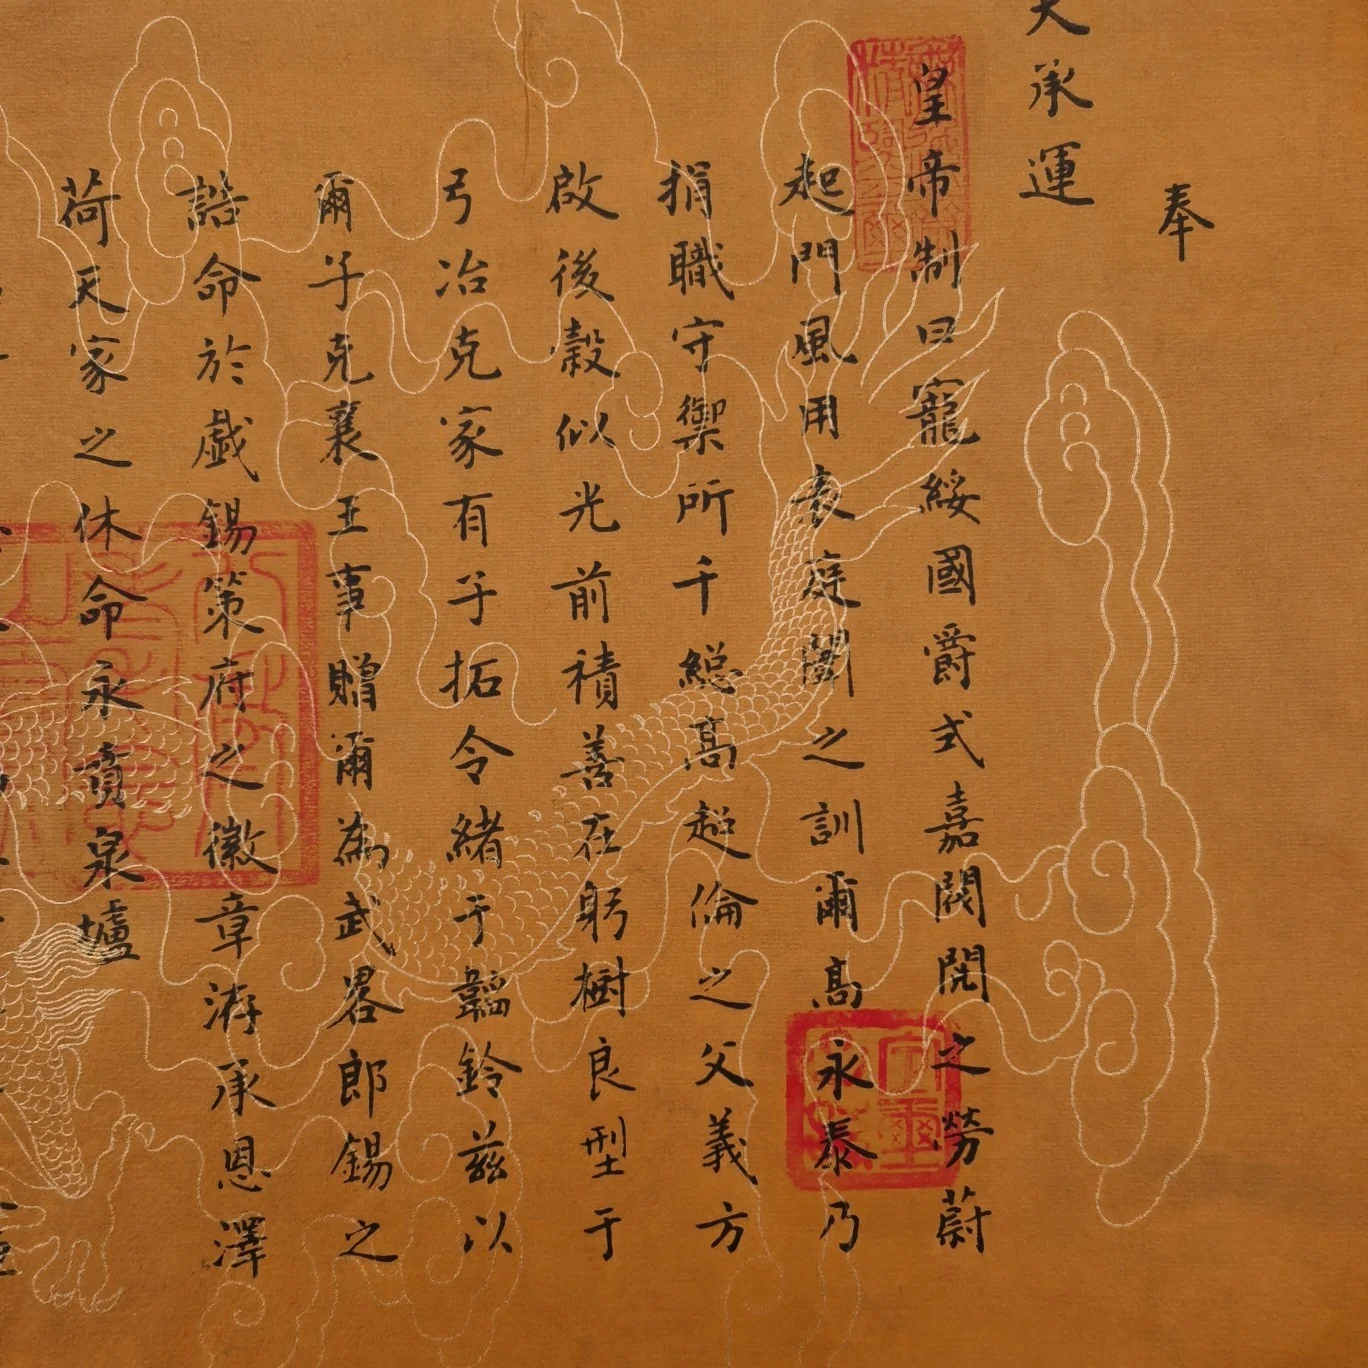 奉
天承運
皇帝制曰寵綏國爵式嘉閥閱之勞蔚
起門風用表庭闈之訓爾高永泰乃
捐職守禦所千總高超倫之父義方
啟後穀似光前積善在躬樹良型于
弓冶克家有子拓令緒于韜鈐茲以
爾子克襄王事贈爾為武畧郎錫之
誥命於戲錫策府之徽章洊承恩澤
荷天家之休命永賁泉壚